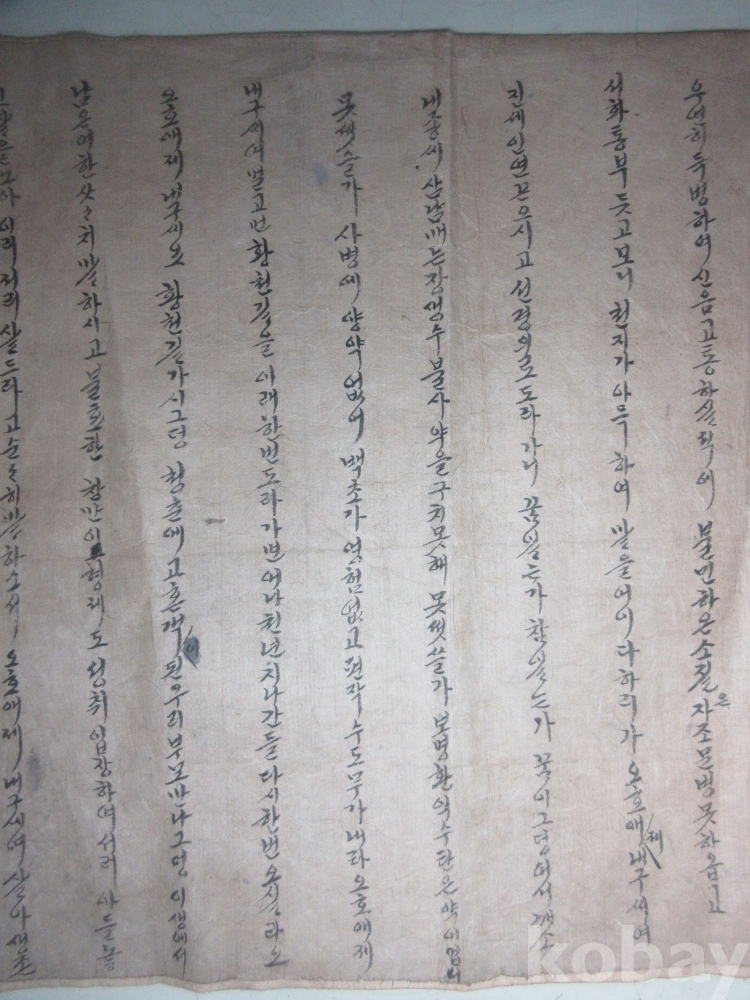 우연히 득병하여 신음고통하실적에 불민하온 소질은 자조 문병 못하옵고
서화통부 듯고보니 천지가 아득하여 말을 어이 다하리가 오호애제 내구씨여
진세인연 끈으시고 선경의로 도라가니 꿈일는가 참일는가 꿈이그덩 어서개소
내종씨 삼남매는 장생수 불사약을 구치못해 못썻쓸가 보명환 익수단은 약이업서
못썻슬가 사병에 양약없어 백초가 영험없고 편작수도 무가내라 오호애제
내구씨여 멀고먼 황천길을 이래한번 도라가면 어나천년 지나간들 다시한번 오실라오
오호애제 내구씨요 황천길가시그덩 청춘에 고혼객이 된 우리부모 만나그덩 이생에서
남은여한 낫낫치 말하시고 불효한 창만이 형제도 성취입장하여서러 아들놓
고 살은 모아 이리저리 살드라고 순순히 말하소서 오호애제 내구씨여 살아생존
kobay